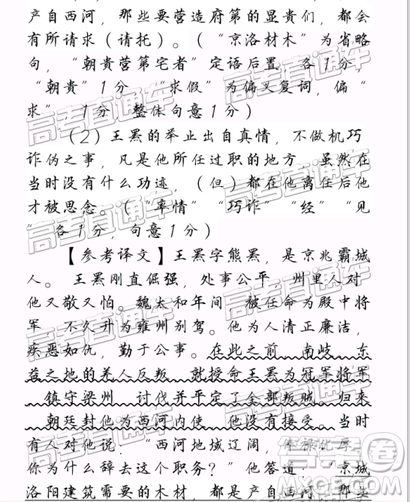 产自西河，那些要营造府第的显贵们，都会
有所请求（请托）。（“京洛材木”为省略
句，“朝贵营第宅者”定语后置，各1分，
“朝贵”1分，“求假”为偏义复词，偏“
求”，1分，整体句意1分）
（2）王罴的举止出自真情，不做机巧
诈伪之事，凡是他所任过职的地方，虽然在
当时没有什么功迹，（但）都在他离任后他
才被思念。（“率情”“巧诈”“经”“见
各1分，句意1分）
【参考译文】王罴字熊罴，是京兆霸城
人。王罴刚直倔强，处事公平，州里人对
他又敬又怕。魏太和年间，被任命为殿中将
军，不久升为雍州别驾。他为人清正廉洁，
疾恶如仇，勤于公事。在此之前，南岐、东
益之地的羌人反叛，就授命王罴为冠军将军
镇守梁州，讨伐并平定了全部叛贼，归来
朝廷封他为西河内使，他没有接受。当时
有人对他说：“西河地域辽阔，俸禄优厚，
你为什么辞去这个职务？”他答道：“京城
洛阳建筑需要的木材，都是产自西河，那些
高考直通车